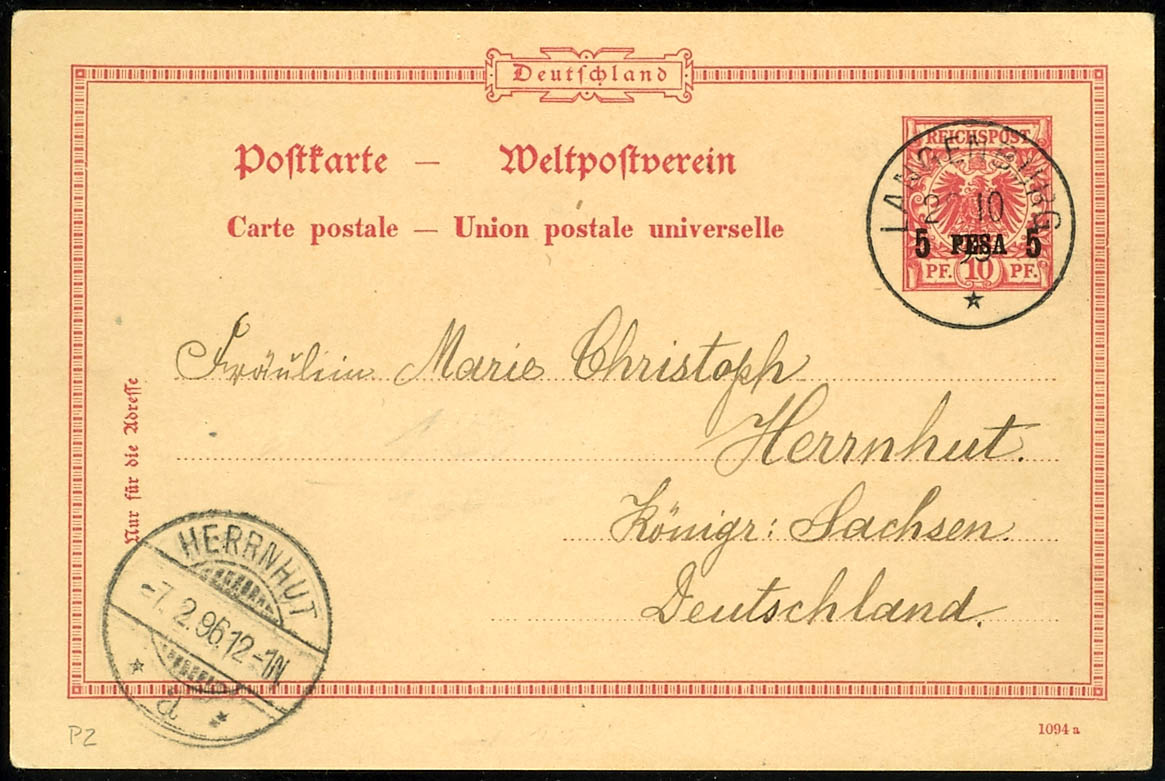 Deutschland
Postkarte — Weltpostverein
Carte postale — Union postale universelle
REICHSPOST
LANGENBURG
10
95
5 PESA 5
PF. 10 PF.
Fräulein Marie Christoph
Herrnhut.
Königr: Sachsen
Deutschland.
Nur für die Adresse
HERRNHUT
-7.2.96.12-1N
a
P2
1094 a